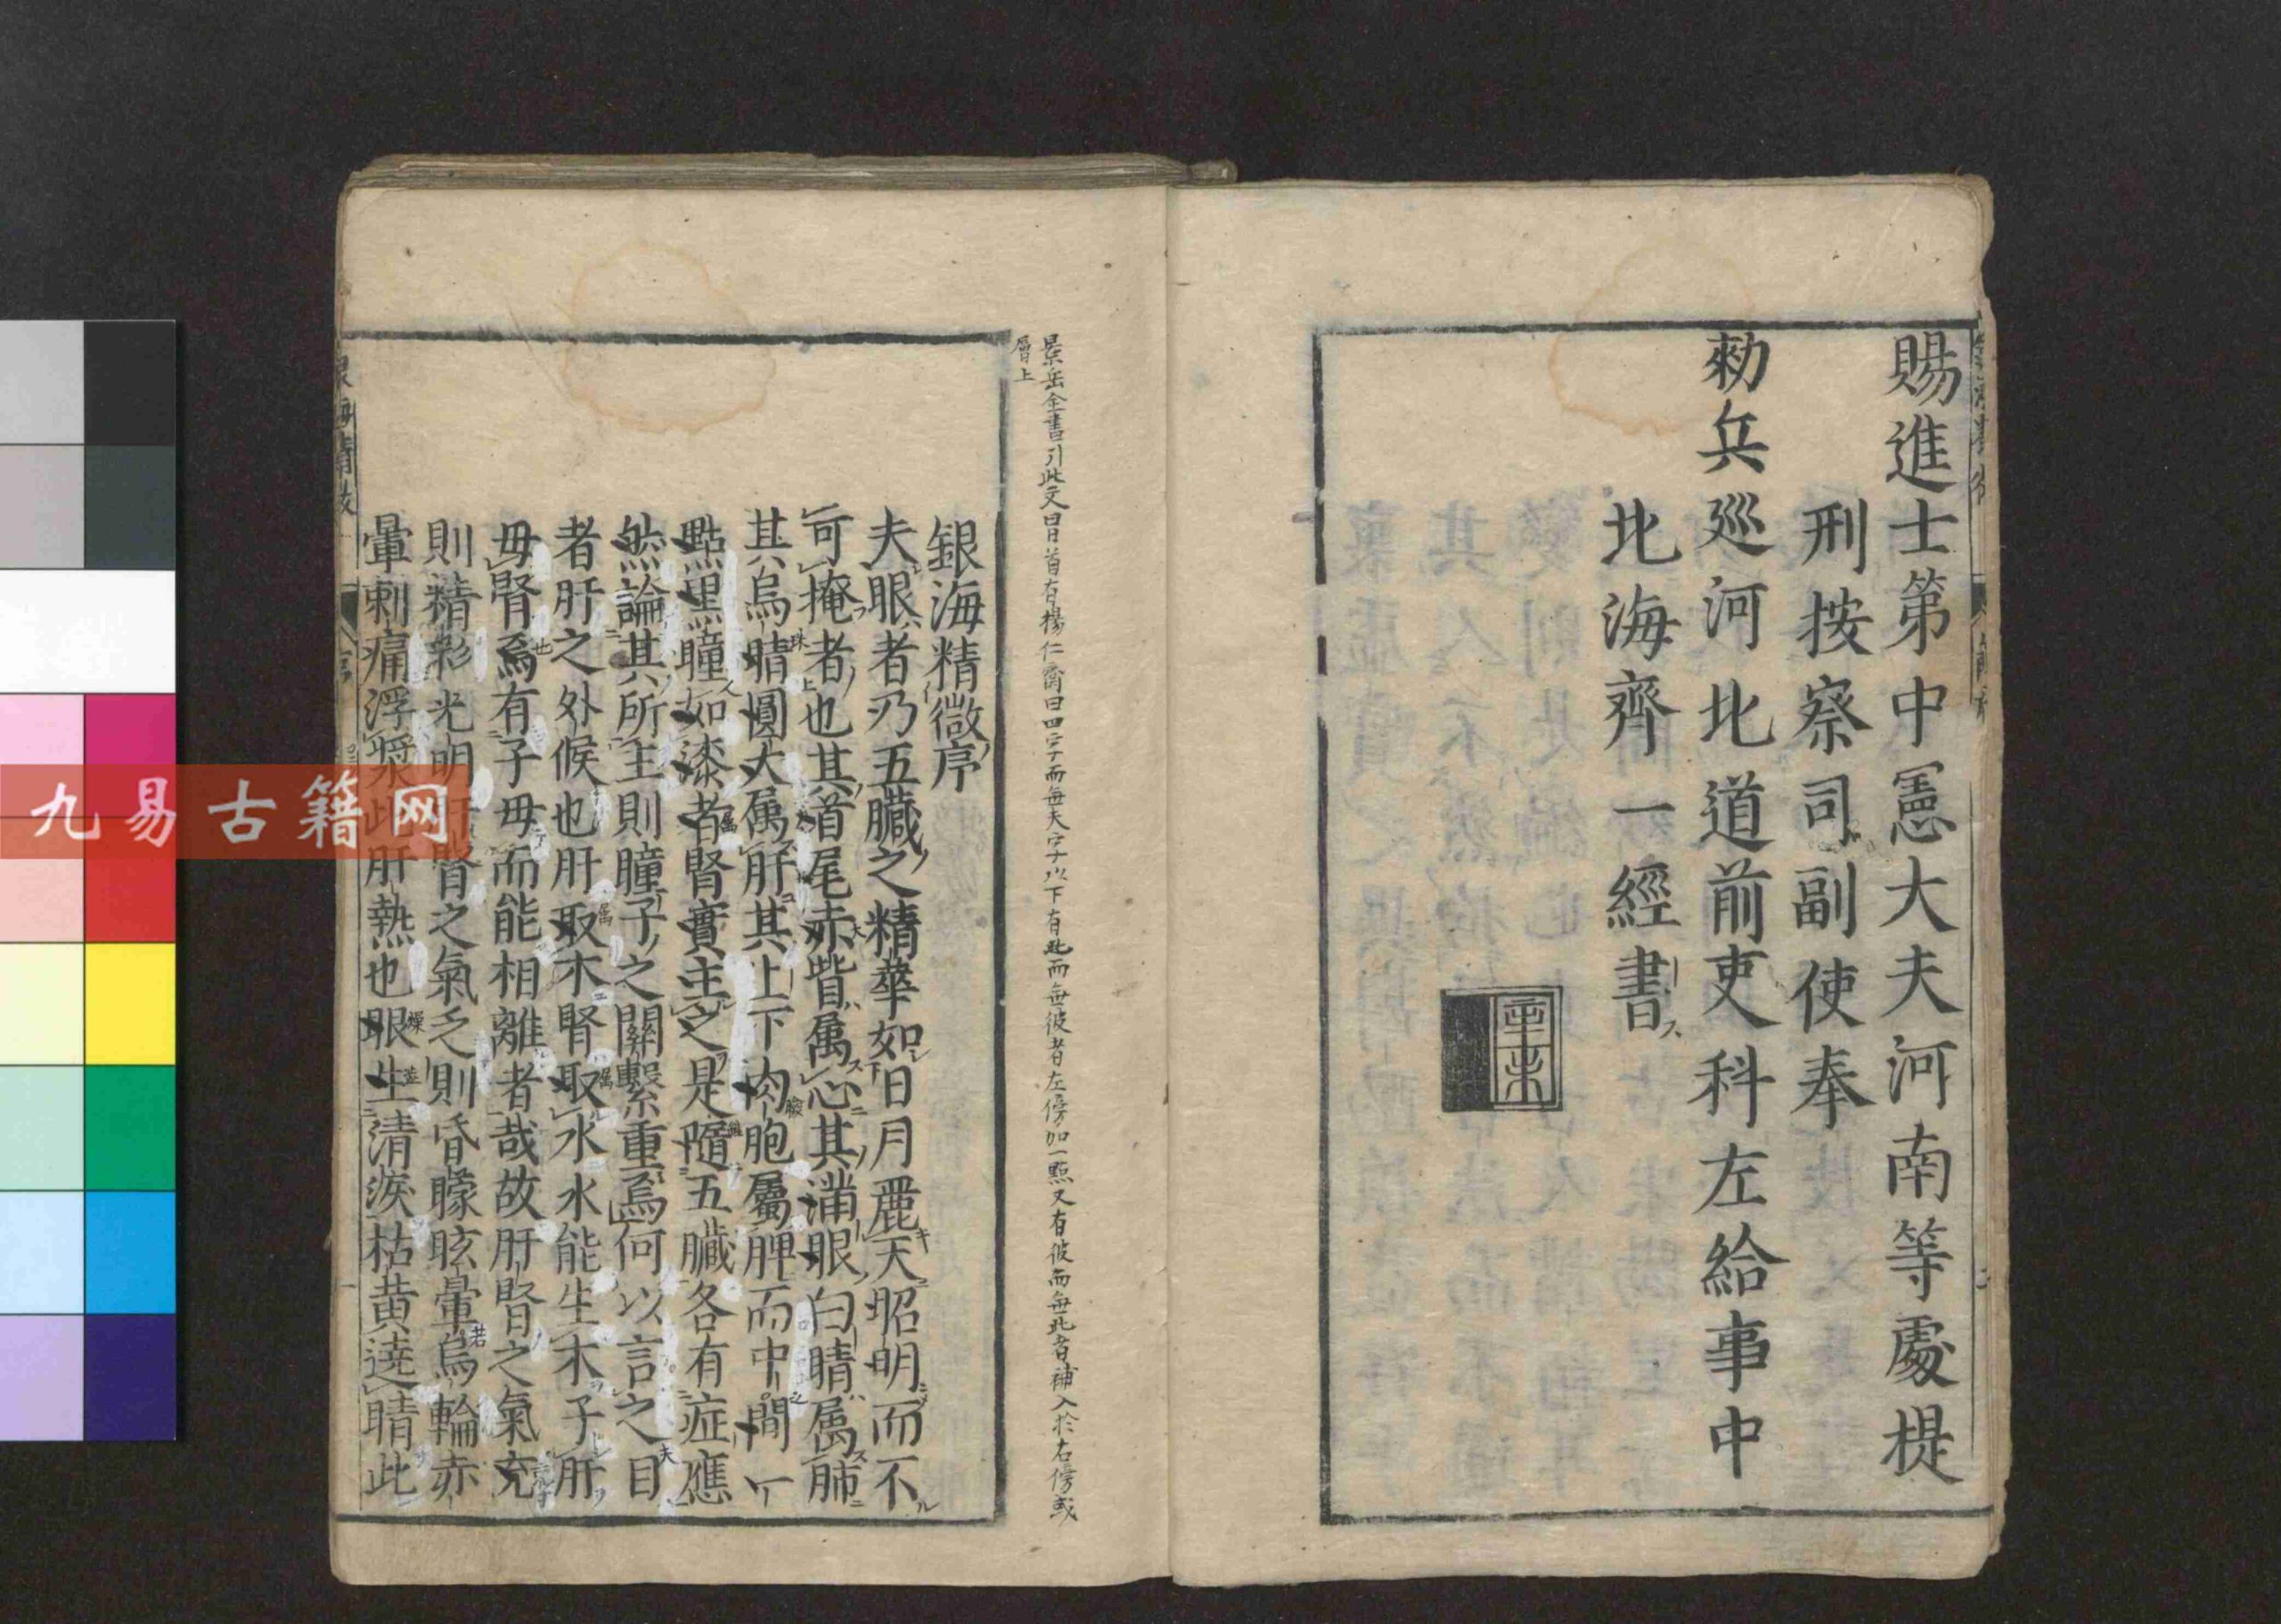 賜進士第中憲大夫河南等處提
刑按察司副使奉
勑兵廵河北道前吏科左給事中
北海齊一經書
景岳全書引此文曰首有楊仁齋曰四字而無夫字以下有此而無彼者左傍加一點又有彼而無此者補入於右傍或
層上
銀海精微序
夫眼者乃五臓之精華如日月麗天昭明而不
可掩者也其首尾赤眥属心其滿眼白睛属肺
其烏睛圓大属肝其上下肉胞屬脾而中間一
點黒瞳如漆者腎實主之是隨五臓各有症應
然論其所主則瞳子之關繫重焉何以言之目
者肝之外候也肝取木腎取水水能生木子肝
毋腎焉有子毋而能相離者哉故肝腎之氣充
則精彩光明肝腎之氣乏則昏矇眩暈烏輪赤
暈刺痛浮漿此肝熱也眼生清淚枯黄遶睛此
九易古籍网